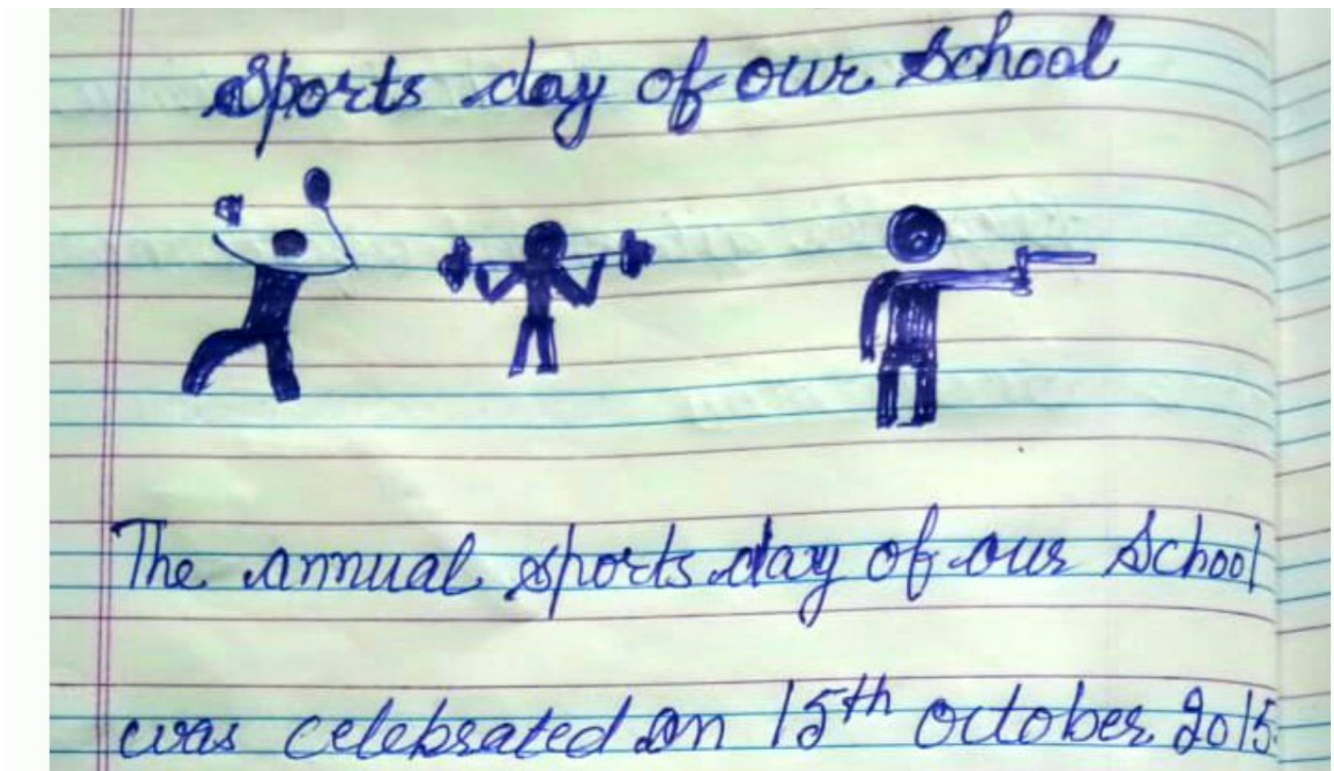 Sports day of our School
The annual sports day of our School
was celebrated on 15th october 2015